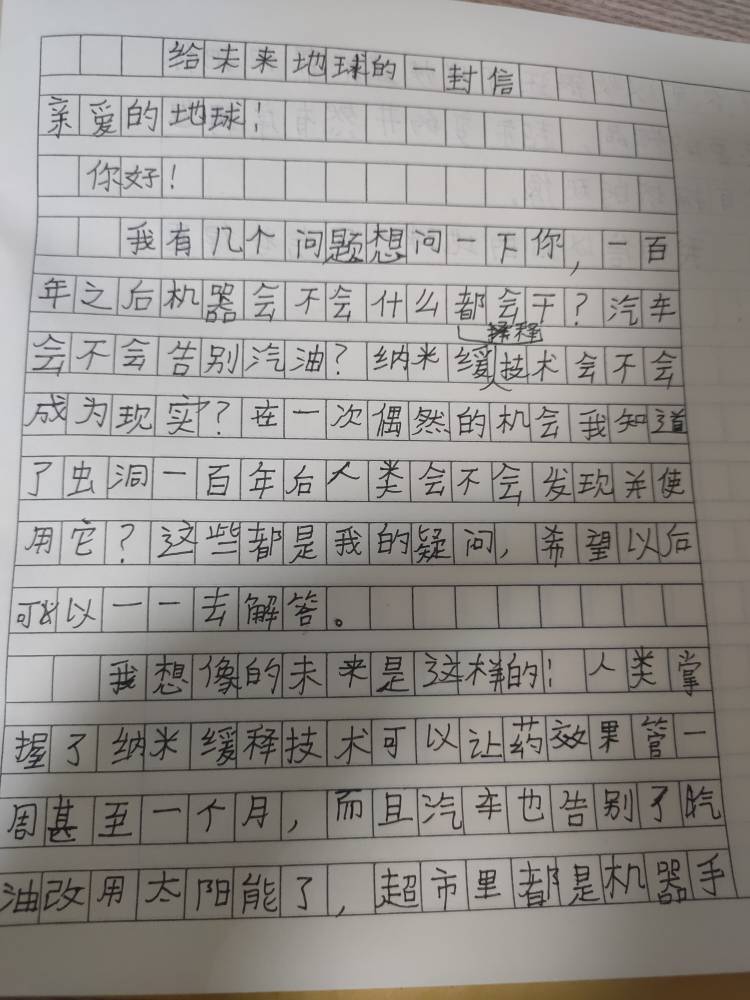 给未来地球的一封信
亲爱的地球！
你好！
我有几个问题想问一下你，一百
年之后机器会不会什么都会干？汽车
会不会告别汽油？纳米缓释技术会不会
成为现实？在一次偶然的机会我知道
了虫洞一百年后人类会不会发现并使
用它？这些都是我的疑问，希望以后
可以以一一去解答。
我想像的未来是这样的！人类掌
握了纳米缓释技术可以让药效果管一
周甚至一个月，而且汽车也告别了汽
油改用太阳能了，超市里都是机器手